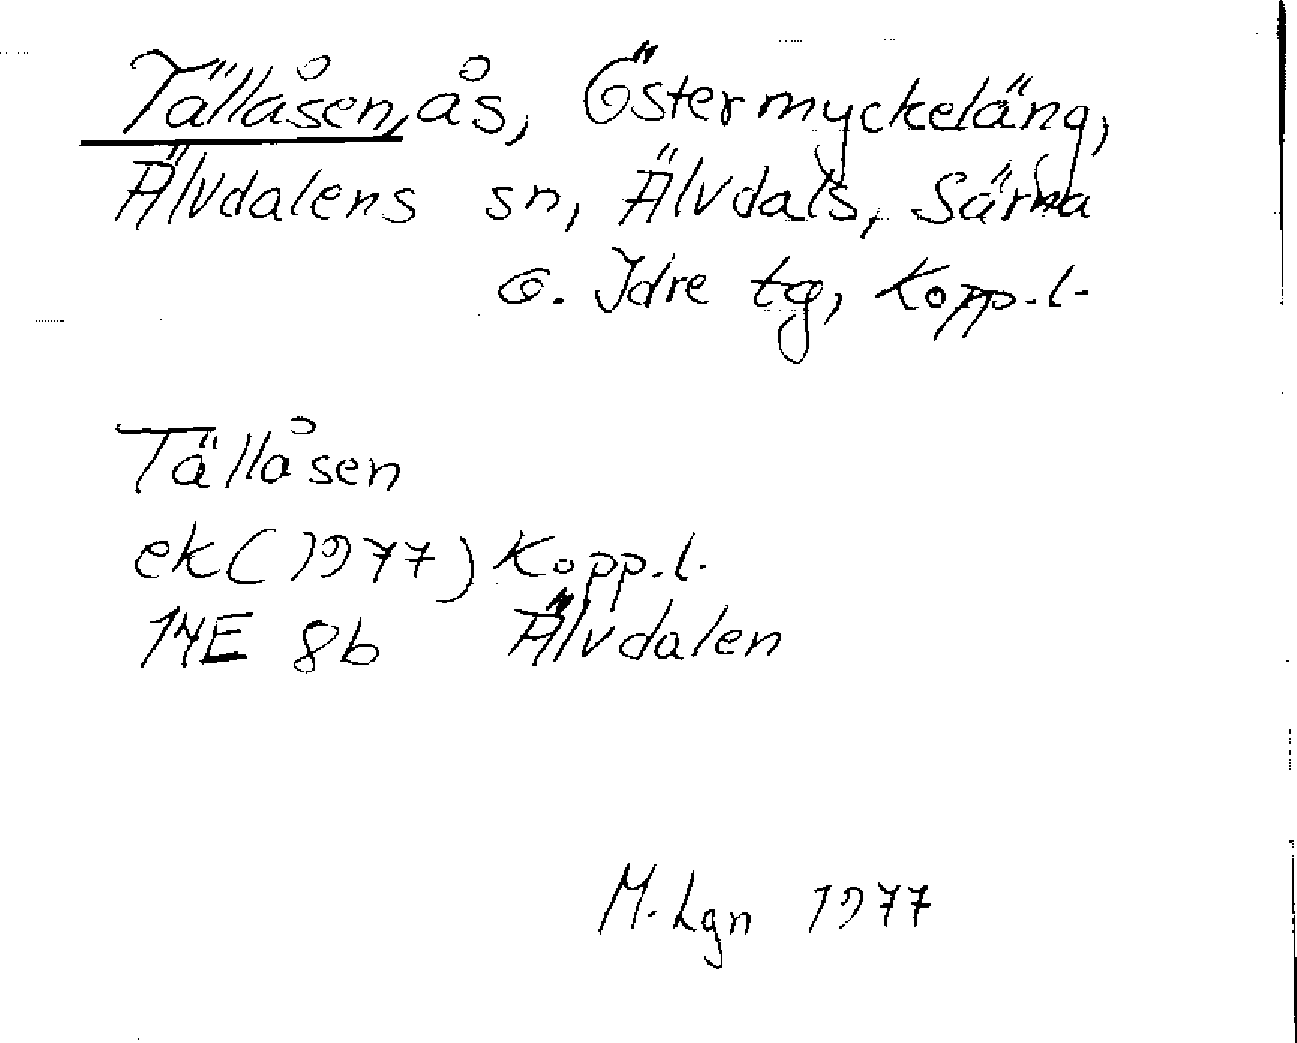 Tällåsen, ås, Östermyckeläng,
Älvdalens sn, Älvdals, Särna
o. Idre tg, Kopp.l.
Tällåsen
ek (1977) Kopp.l.
14E 8b Älvdalen
M. Lgn 1977